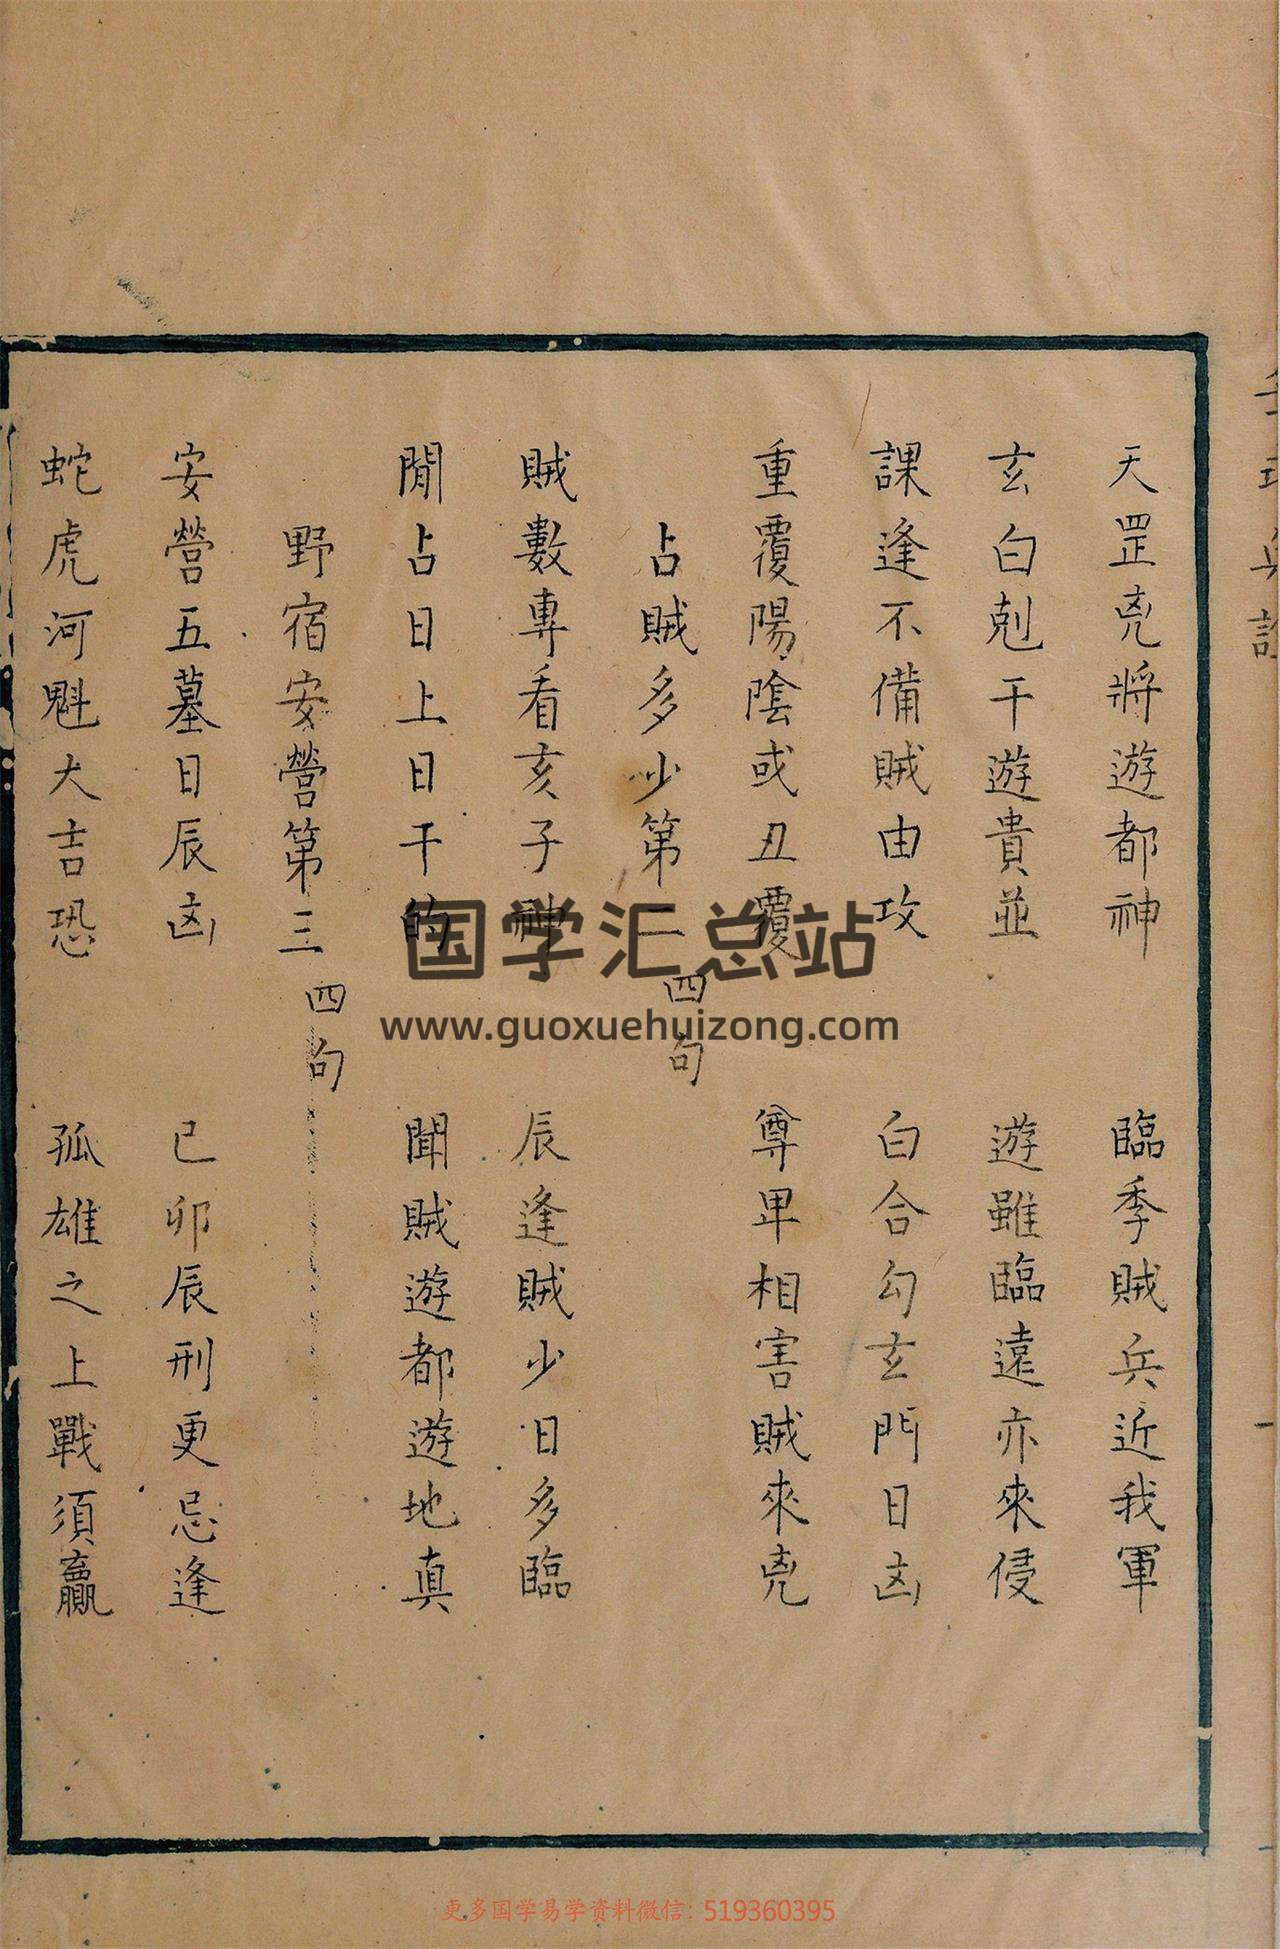 天罡克將遊都神　臨季賊兵近我軍
玄白剋干遊貴並　遊雖臨遠亦來侵
課逢不備賊由攻　白合勾玄門日凶
重覆陽陰或丑覆　尊卑相害賊來克
占賊多少第二　四句
賊數專看亥子神　辰逢賊少日多臨
閒占日上日干的　聞賊遊都遊地真
野宿安營第三　四句
安營五墓日辰凶　已卯辰刑更忌逢
蛇虎河魁大吉恐　孤雄之上戰須贏
国学汇总站
www.guoxuehuizong.com
更多国学易学资料微信: 519360395